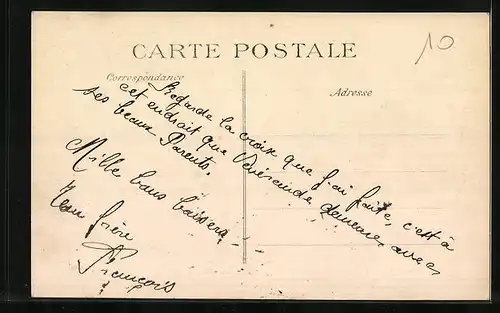 10
CARTE POSTALE
Correspondance
Adresse
Regarde la croix que j'ai faite, c'est à
cet endroit que demeure, avec
ses beaux Parents.
Mille bons baisers
Ton frère
François